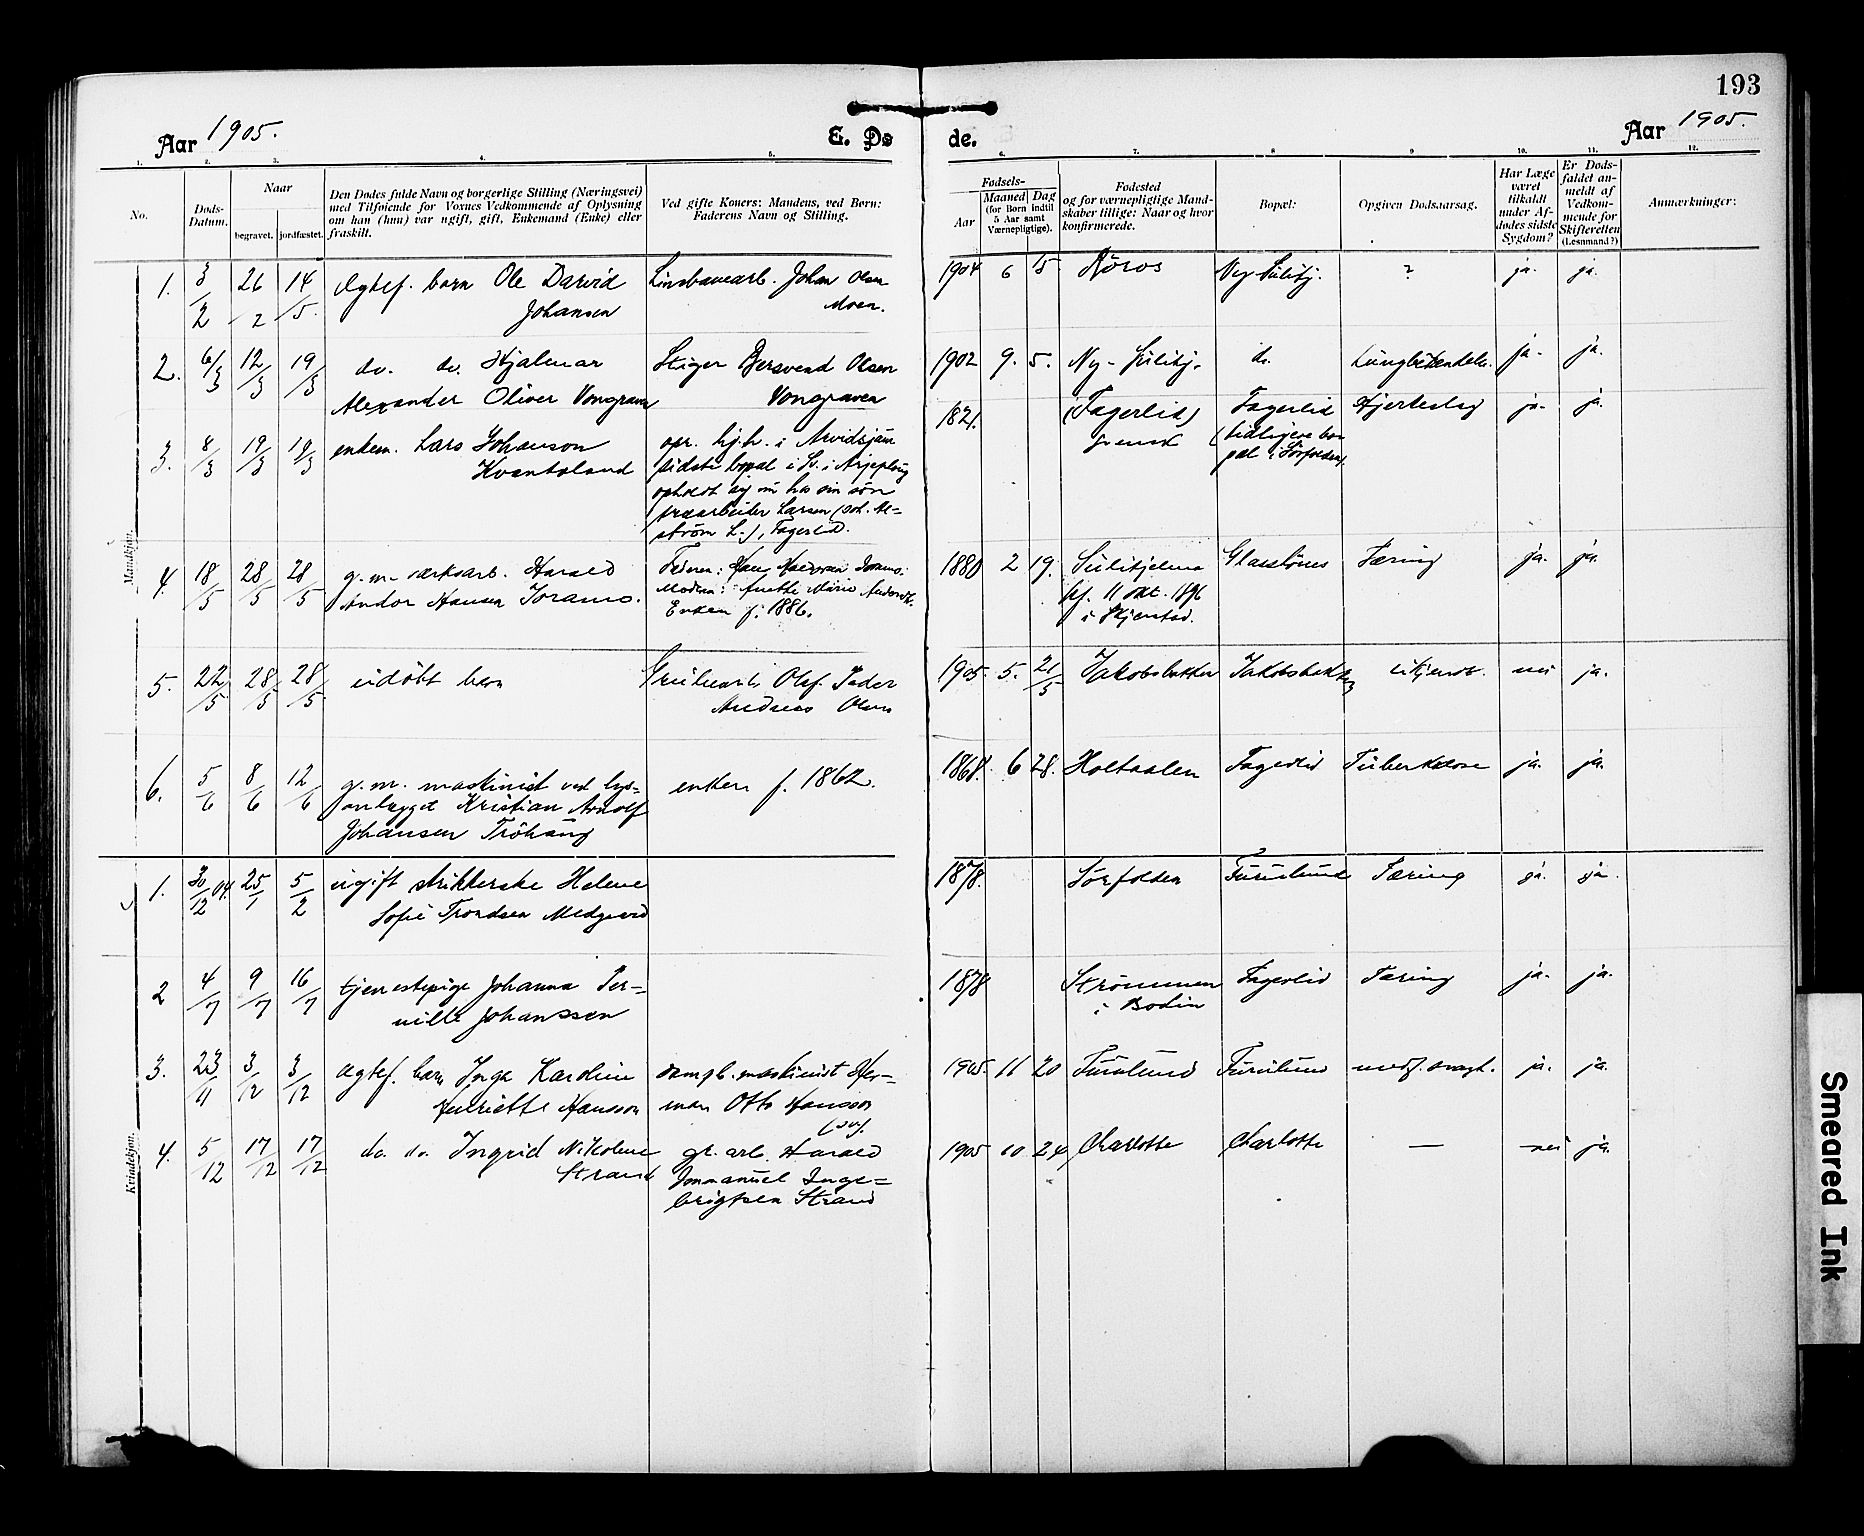 193
Aar 1905.
E. Dø
de.
Aar 1905.
1. 2. 3. 4. 5. 6. 7. 8 9 10. 11. 12.
No.
Døds-
Datum.
Naar
begravet. jordfæstet.
Den Dødes fulde Navn og borgerlige Stilling (Næringsvei)
med Tilføiende for Voxnes Vedkommende af Oplysning
om han (hun) var ugift, gift, Enkemand (Enke) eller
fraskilt.
Ved gifte Koner: Mandens, ved Børn:
Faderens Navn og Stilling.
Fødsels-
Aar
Maaned Dag
(for Børn indtil
5 Aar samt
Værnepligtige).
Fødested
og for værnepligtige Mand-
skaber tillige: Naar og hvor
konfirmerede.
Bopæl:
Opgiven Dødsaarsag.
Har Læge
været
tilkaldt
under Af-
dødes sidste
Sygdom?
Er Døds-
faldet an-
meldt af
Vedkom-
mende for
Skifteretten
(Lensmand?)
Anmærkninger:
Mandkjøn.
1. 3/2 26/2 14/5. Ægtef. barn Ole Darvid Johan Olsen 1904 6 15 Röros Ny-Sulitj. ? ja. ja.
Johansen Moen.
2. 6/3 12/3 19/3 do. do. Hjalmar Stiger Bersvend Olsen 1902 9. 5. Ny-Sulitj. do. ja. ja.
Alexander Oliver Vongraven Vongraven
3. 8/3 19/3 19/3 enkem. Lars Johanson opr. hj.h. i Arvidsjaur 1821. (Fagerlid) Fagerlid Hjerteslag ja. ja.
Kvantoland sidste bopæl i Sv. i Arjeploug svensk (tidligere bo-
opholdt sig nu hos sin sön pæl i Sörfolden).
Larsen
ström L.), Fagerlid.
4. 18/5 28/5 28/5 g.m. værksarb. Harald 1880 2 19. Sulitjelma Glasstönes Tæring ja. ja.
Andor Hansen Joramo. Moderen: Anethe Marie kf. 11 okt. 1896
Enken f. 1886. i Skjerstad.
5. 22/5 28/5 28/5 udöbt barn Grubearb. Olaf Peder 1905. 5. 21/5 Jakobsbakken Jakobsbakken ukjendt. nei ja.
Andreas Olsen
6. 5/6 8/6 12/6 g.m. maskinist ved lys- enken f. 1862. 1868. 6 28. Holtaalen Fagerlid Tuberkulose ja. ja.
anlægget Kristian Arnolf
Johansen Tröhaug
Kvindekjøn.
1. 30/12 04. 25/1 5/2 ugift strikkerske Helene 1878. Sörfolden Furulund Tæring ja. ja.
Sofie Trondsen Medgaard
2 4/7 9/7 16/7 tjenestepige Johanna Per- 1878 Strömmen Fagerlid Tæring ja. ja.
nille Johanssen i Bodin
3. 23/11 3/12 3/12 Ægtef. barn Inga Karoline dampb. maskinist Her- 1905. 11 20 Furulund Furulund medf. svagh. ja. ja.
Henriette Hansson man Otto Hansson
(sv).
4. 5/12 17/12 17/12 do. do. Ingrid Nikoline gr. arb. Harald 1905 10 24 Charlotte Charlotte — nei ja.
Strand Immanuel Inge-
brigtsen Strand
Smeared Ink